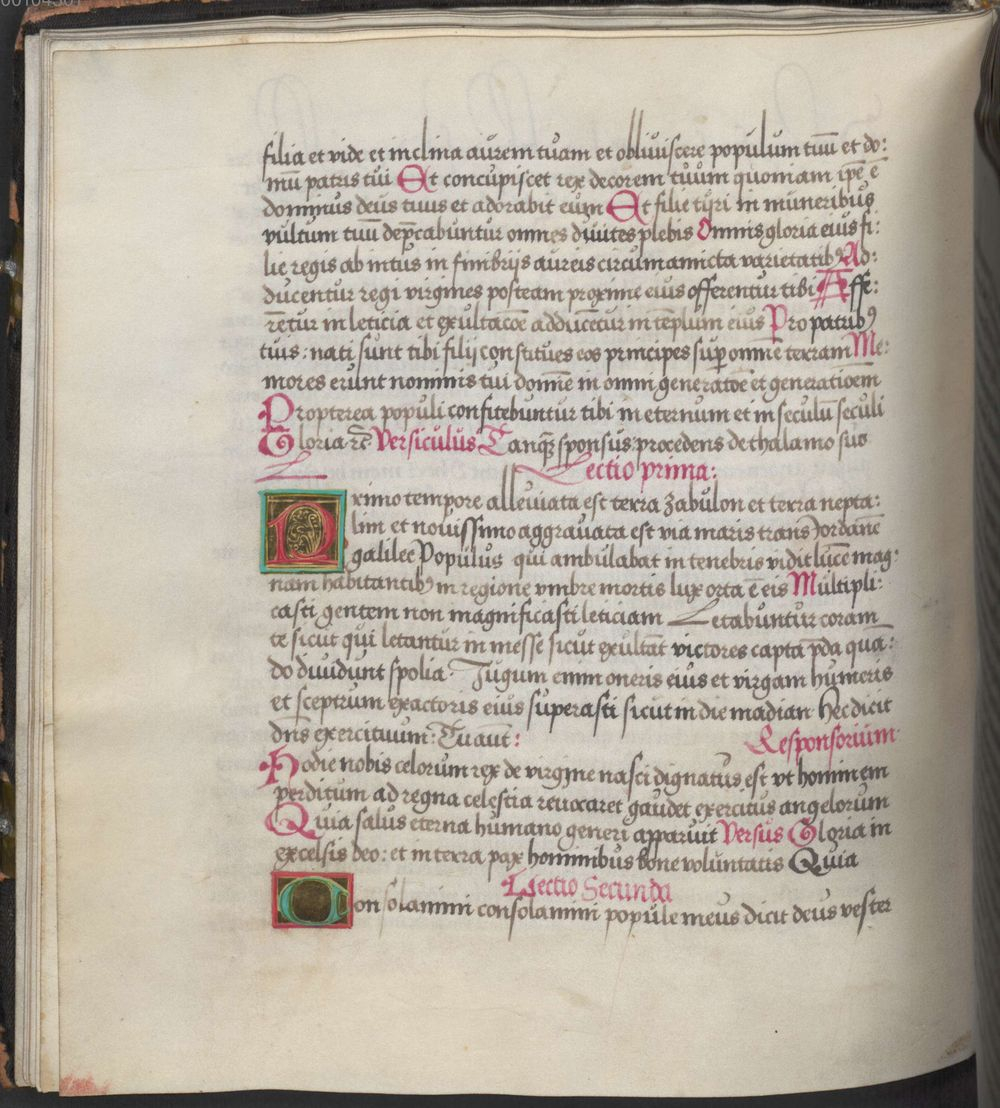 filia et vide et inclina aurem tuam et obliuiscere populum tuū et do:
mū patris tui Et concupiscet rex decorem tuum quoniam ip̄e ē
dominus deus tuus et adorabit eum Et filie tyri in muneribus
vultum tuū dep̄cabuntur omnes diuites plebis Omnis gloria eius fi:
lie regis ab intus in fimbrijs aureis circumamicta varietatibꝰ Ad:
ducentur regi virgines posteam proxime eius offerentur tibi Affe:
rētur in leticia et exultacōe adducētur in tēplum eius Pro patribꝰ
tuis: nati sunt tibi filij constitues eos principes sup̄ omnē terram Me:
mores erunt nominis tui domīe in omni generatōe et generatioēm
Propterea populi confitebuntur tibi in eternum et in seculū seculi
Gloria rc̄ Versiculus Tanqꝫ sponsus: procedens de thalamo suo
Lectio prima:
Primo tempore alleuiata est terra zabulon et terra nepta:
lim et nouissimo aggrauata est via maris trans Jordanē
galilee Populus qui ambulabat in tenebris vidit lucē mag:
nam habitantibꝰ in regione vmbre mortis lux orta ē eis Multipli:
casti gentem non magnificasti leticiam Letabuntur coram
te sicut qui letantur in messe sicut exultāt victores capta p̄da quā:
do diuidunt spolia. Jugum enim oneris eius et virgam humeris
et sceptrum exactoris eius superasti sicut in die madian Hec dicit
dn̄s exercituum: Tu aut̄:
Responsorium
Hodie nobis celorum rex de virgine nasci dignatus est vt hominem
perditum ad regna celestia reuocaret gaudet exercitus angelorum
Quia salus eterna humano generi apparuit Versus Gloria in
excelsis deo: et in terra pax hominibus bone voluntatis Quia
Lectio Secunda
Consolamini consolamini popule meus dicit deus vester